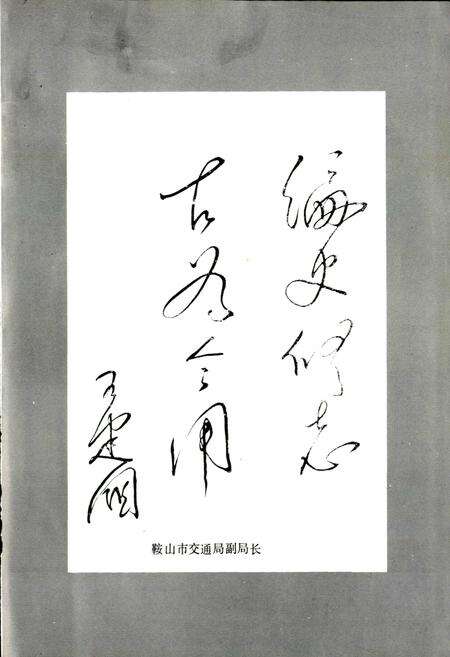 编史修志
古为今用
王建国
鞍山市交通局副局长